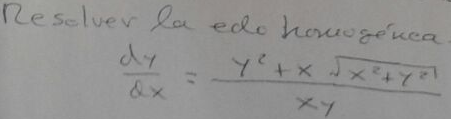 Resolver la edo homogénea.
dy/dx = (y² + x √(x² + y²))/(xy)